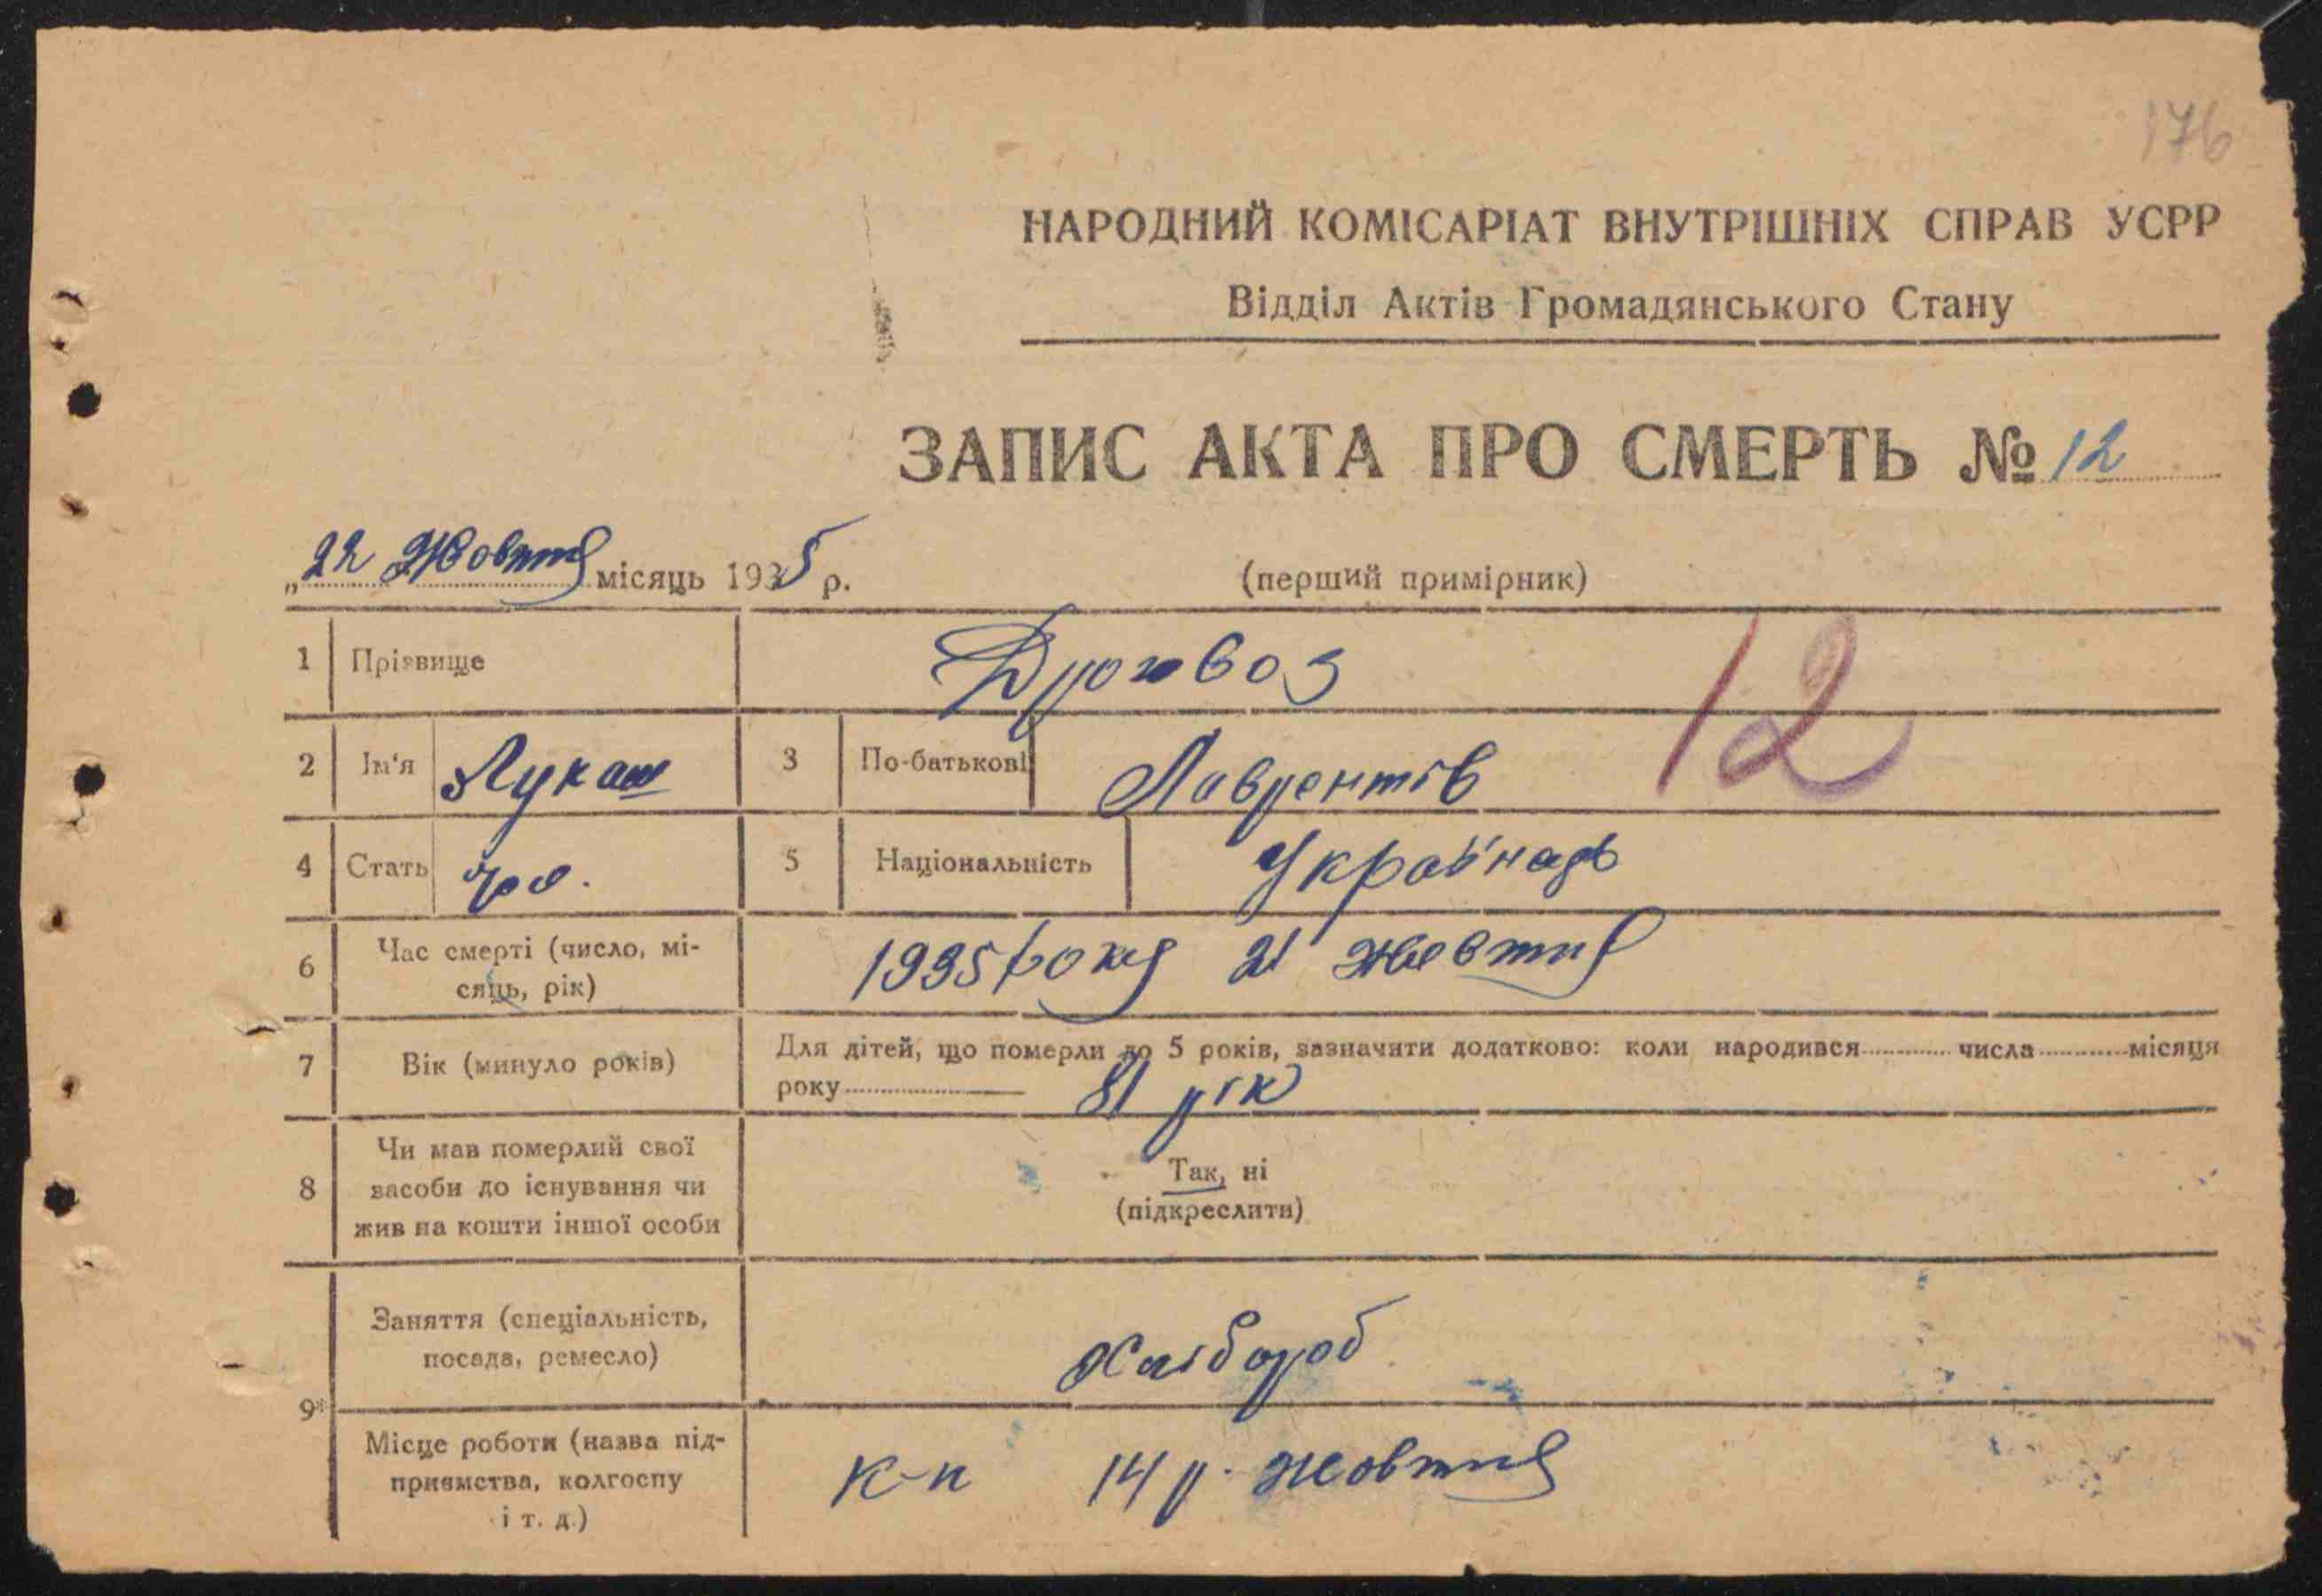 176
НАРОДНИЙ КОМІСАРІАТ ВНУТРІШНІХ СПРАВ УСРР
Відділ Актів Громадянського Стану
ЗАПИС АКТА ПРО СМЕРТЬ № 12
„22 Жовтня місяць 1935 р.
(перший примірник)
1 Прізвище Дроквоз
12
2 Ім'я Лукаш 3 По-батькові Лаврентів
4 Стать чо. 5 Національність Українець
6 Час смерті (число, мі-
сяць, рік) 1935 року 21 жовтня
7 Вік (минуло років) Для дітей, що померли до 5 років, зазначити додатково: коли народився числа місяця
року 81 рік
8 Чи мав померлий свої
засоби до існування чи
жив на кошти іншої особи
Так, ні
(підкреслити)
9* Заняття (спеціальність,
посада, ремесло) Хлібороб
Місце роботи (назва під-
приємства, колгоспу
і т. д.) к-п 14 р. жовтня